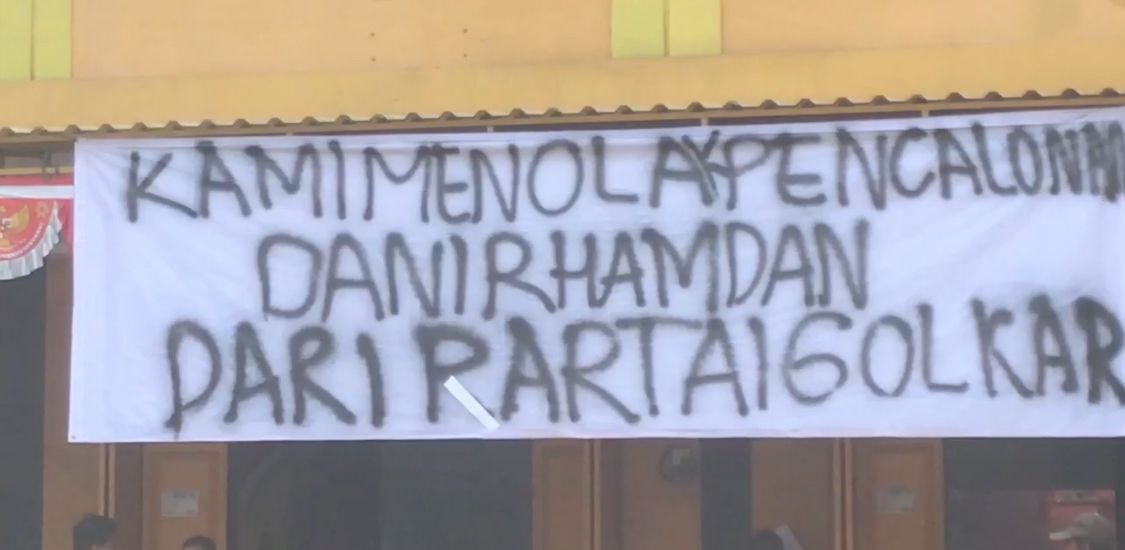 KAMI MENOLAK PENCALONAN
DANI RHAMDAN
DARI PARTAI GOLKAR